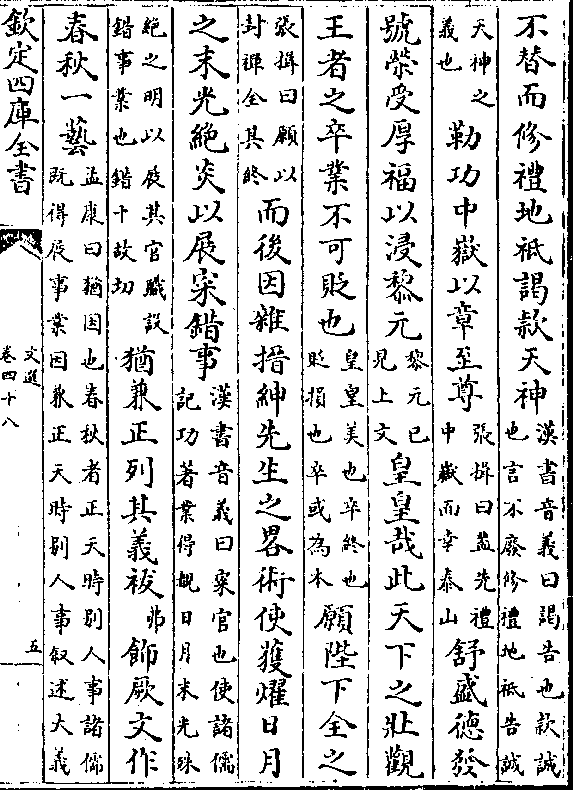 不替而修禮地祇謁款天神漢書音義曰謁告也款誠也言不廢修禮地祇告誠
天神之義也勒功中嶽以章至尊張揖曰蓋先禮中嶽而幸泰山舒盛德發
號榮受厚福以浸黎元黎元已見上文皇皇哉此天下之壯觀
王者之卒業不可貶也皇皇美也卒終也貶損也卒或為本願陛下全之
張揖曰願以封禪全其終而後因雜搢紳先生之畧術使獲燿日月
之末光絶炎以展寀錯事漢書音義曰寀官也使諸儒記功著業得覩日月末光殊
絶之明以展其官職設錯事業也錯千故切猶兼正列其義祓弗飾厥文作
春秋一藝孟康曰猶因也春秋者正天時别人事諸儒既得展事業因兼正天時别人事叙述大義
欽定四庫全書
文選
卷四十八
五